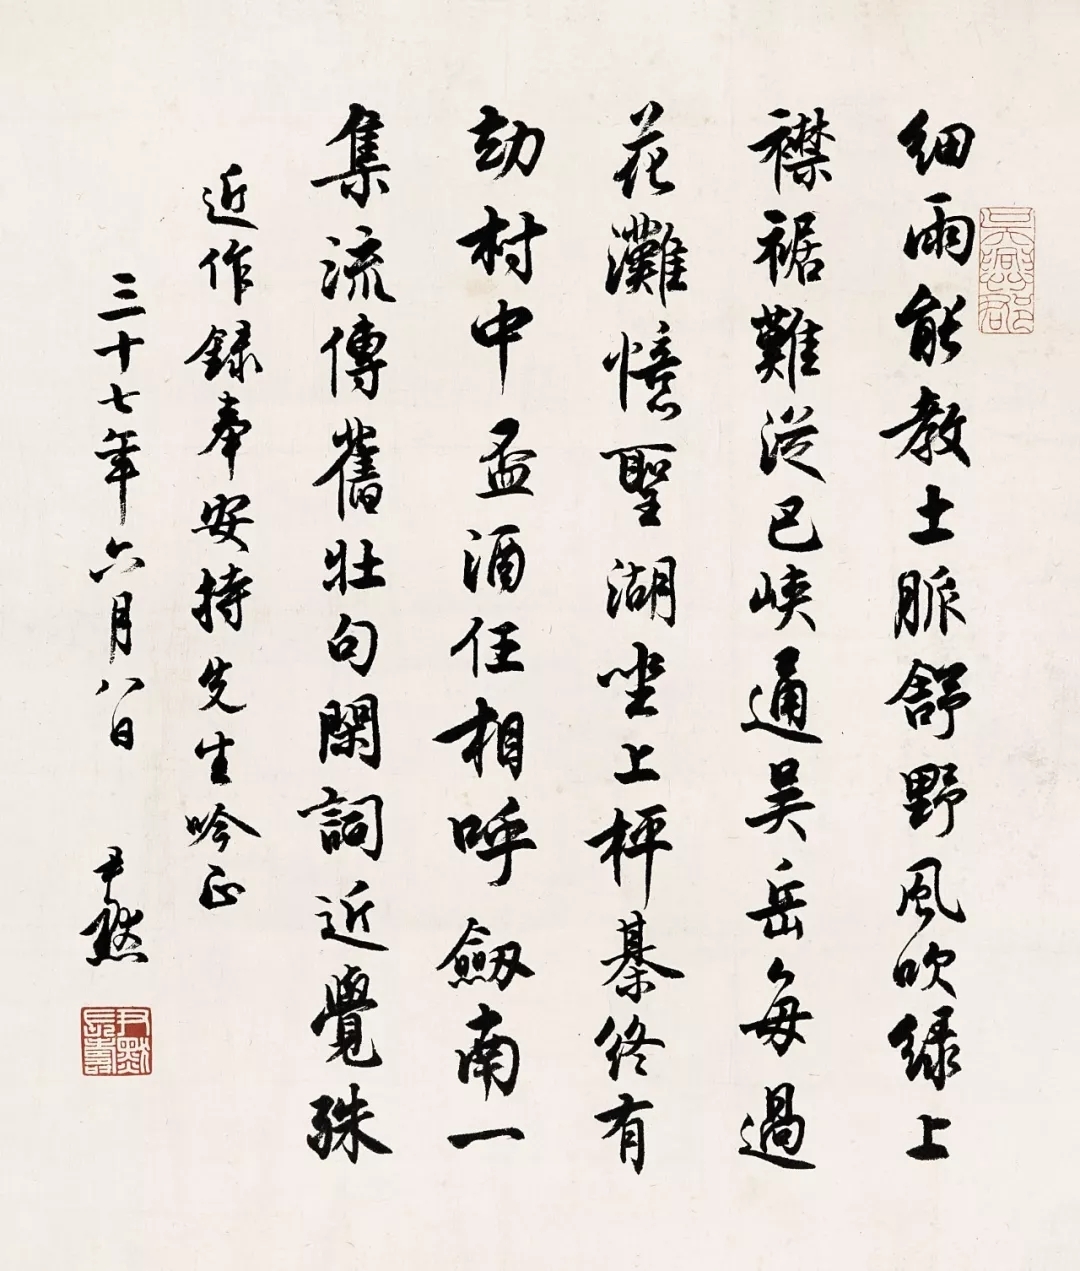 細雨能教土脈舒野風吹綠上
襟裾難從巴峽通吴岳每過
花灘憶聖湖坐上枰棊終有
劫村中盃酒任相呼劒南一
集流傳舊壯句閑詞近覺殊
近作録奉安持先生吟正
三十七年六月八日
尹默
尹默長壽